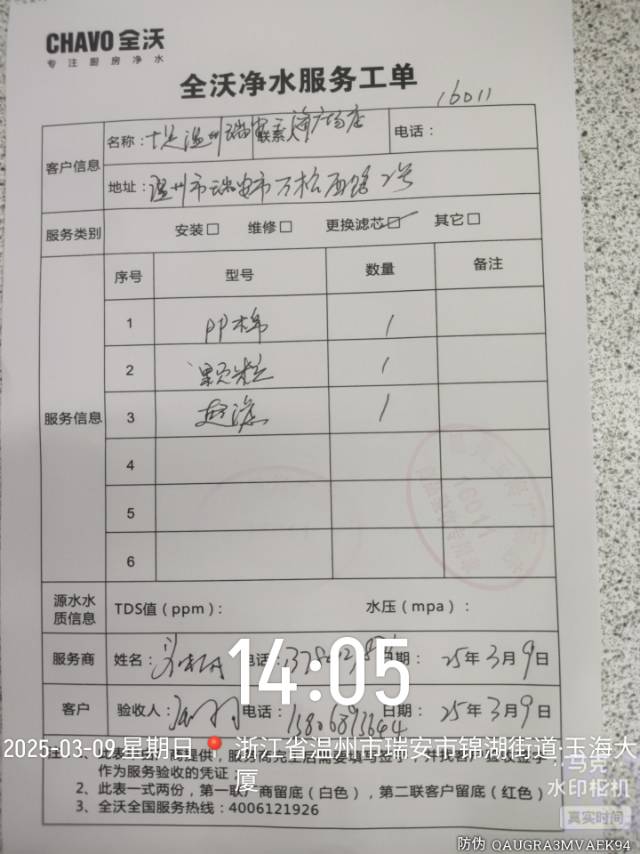 CHAVO 全沃
专注厨房净水
全沃净水服务工单
16011
客户信息
名称：
温州瑞安
联系人
广场店
电话：
地址：温州市瑞安市万松西路2号
服务类别
安装□ 维修□ 更换滤芯☑ 其它□
服务信息
序号 型号 数量 备注
1 PP棉 1
2 颗粒 1
3 超滤 1
4
5
6
源水水质信息
TDS值（ppm）： 水压（mpa）：
服务商 姓名： 电话： 日期： 25年3月9日
客户 验收人： 电话： 日期： 25年3月9日
14:05
2025-03-09 星期日 浙江省温州市瑞安市锦湖街道·玉海大厦
作为服务验收的凭证；
2、此表一式两份，第一联 商留底（白色），第二联客户留底（红色）
3、全沃全国服务热线：4006121926
马克
水印相机
真实时间
防伪 QAUGRA3MVAEK94